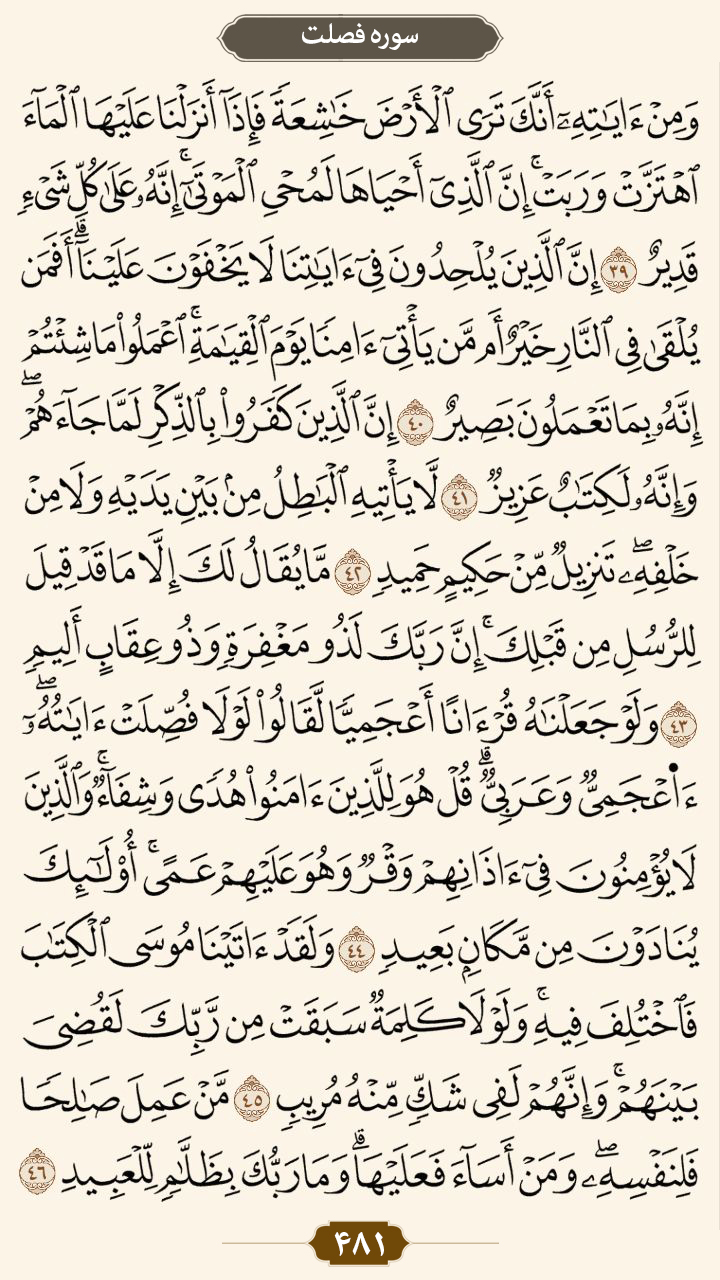 سوره فصلت
وَمِنۡ ءَايَٰتِهِۦٓ أَنَّكَ تَرَى ٱلۡأَرۡضَ خَٰشِعَةٗ فَإِذَآ أَنزَلۡنَا عَلَيۡهَا ٱلۡمَآءَ
ٱهۡتَزَّتۡ وَرَبَتۡۚ إِنَّ ٱلَّذِيٓ أَحۡيَاهَا لَمُحۡيِ ٱلۡمَوۡتَىٰٓۚ إِنَّهُۥ عَلَىٰ كُلِّ شَيۡءٖ
قَدِيرٌ ٣٩ إِنَّ ٱلَّذِينَ يُلۡحِدُونَ فِيٓ ءَايَٰتِنَا لَا يَخۡفَوۡنَ عَلَيۡنَآۗ أَفَمَن
يُلۡقَىٰ فِي ٱلنَّارِ خَيۡرٌ أَم مَّن يَأۡتِيٓ ءَامِنٗا يَوۡمَ ٱلۡقِيَٰمَةِۚ ٱعۡمَلُواْ مَا شِئۡتُمۡ
إِنَّهُۥ بِمَا تَعۡمَلُونَ بَصِيرٌ ٤٠ إِنَّ ٱلَّذِينَ كَفَرُواْ بِٱلذِّكۡرِ لَمَّا جَآءَهُمۡۖ
وَإِنَّهُۥ لَكِتَٰبٌ عَزِيزٞ ٤١ لَّا يَأۡتِيهِ ٱلۡبَٰطِلُ مِنۢ بَيۡنِ يَدَيۡهِ وَلَا مِنۡ
خَلۡفِهِۦۖ تَنزِيلٞ مِّنۡ حَكِيمٍ حَمِيدٖ ٤٢ مَّا يُقَالُ لَكَ إِلَّا مَا قَدۡ قِيلَ
لِلرُّسُلِ مِن قَبۡلِكَۚ إِنَّ رَبَّكَ لَذُو مَغۡفِرَةٖ وَذُو عِقَابٍ أَلِيمٖ
٤٣ وَلَوۡ جَعَلۡنَٰهُ قُرۡءَانًا أَعۡجَمِيّٗا لَّقَالُواْ لَوۡلَا فُصِّلَتۡ ءَايَٰتُهُۥٓۖ
ءَا۬عۡجَمِيّٞ وَعَرَبِيّٞۗ قُلۡ هُوَ لِلَّذِينَ ءَامَنُواْ هُدٗى وَشِفَآءٞۚ وَٱلَّذِينَ
لَا يُؤۡمِنُونَ فِيٓ ءَاذَانِهِمۡ وَقۡرٞ وَهُوَ عَلَيۡهِمۡ عَمًىۚ أُوْلَٰٓئِكَ
يُنَادَوۡنَ مِن مَّكَانِۭ بَعِيدٖ ٤٤ وَلَقَدۡ ءَاتَيۡنَا مُوسَى ٱلۡكِتَٰبَ
فَٱخۡتُلِفَ فِيهِۚ وَلَوۡلَا كَلِمَةٞ سَبَقَتۡ مِن رَّبِّكَ لَقُضِيَ
بَيۡنَهُمۡۚ وَإِنَّهُمۡ لَفِي شَكّٖ مِّنۡهُ مُرِيبٖ ٤٥ مَّنۡ عَمِلَ صَٰلِحٗا
فَلِنَفۡسِهِۦۖ وَمَنۡ أَسَآءَ فَعَلَيۡهَاۗ وَمَا رَبُّكَ بِظَلَّٰمٖ لِّلۡعَبِيدِ ٤٦
۴۸۱